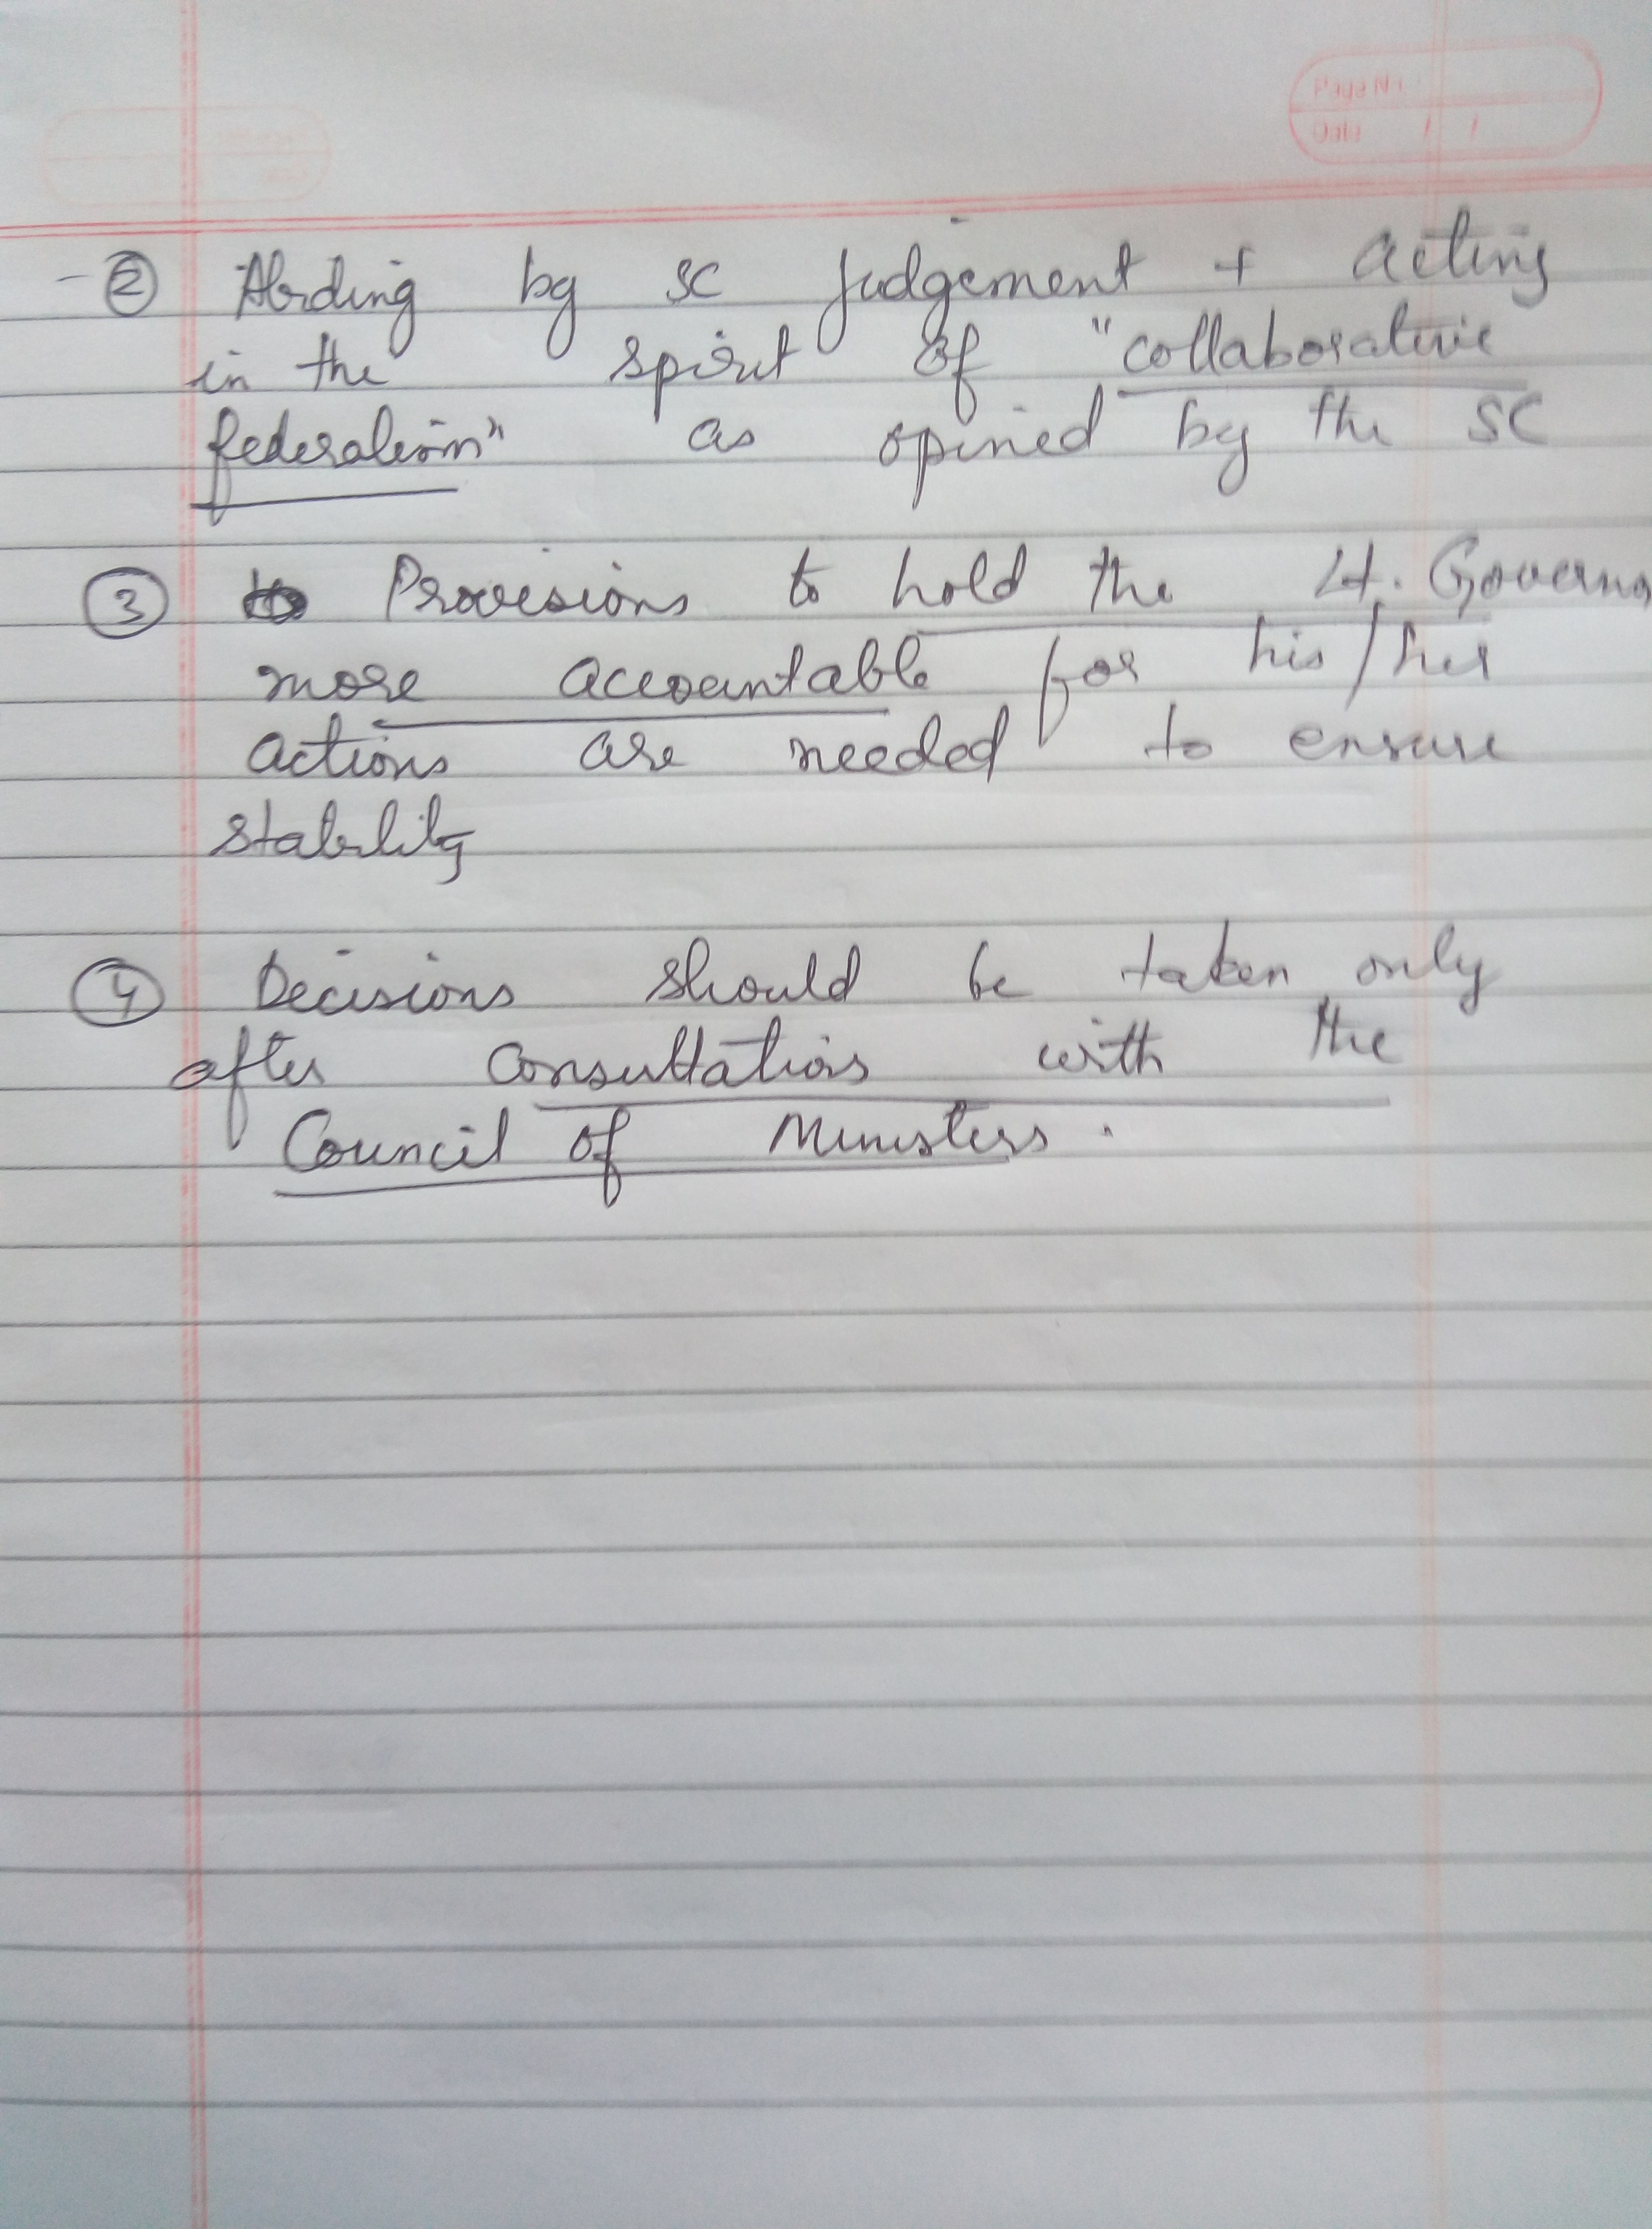 Page No.
Date / /
② Abiding by SC judgement + acting
in the spirit of "collaborative
federalism" as opined by the SC
③ Provisions to hold the Lt. Governo
more accountable for his/her
actions are needed to ensure
stability
④ Decisions should be taken only
after consultations with the
Council of Ministers.